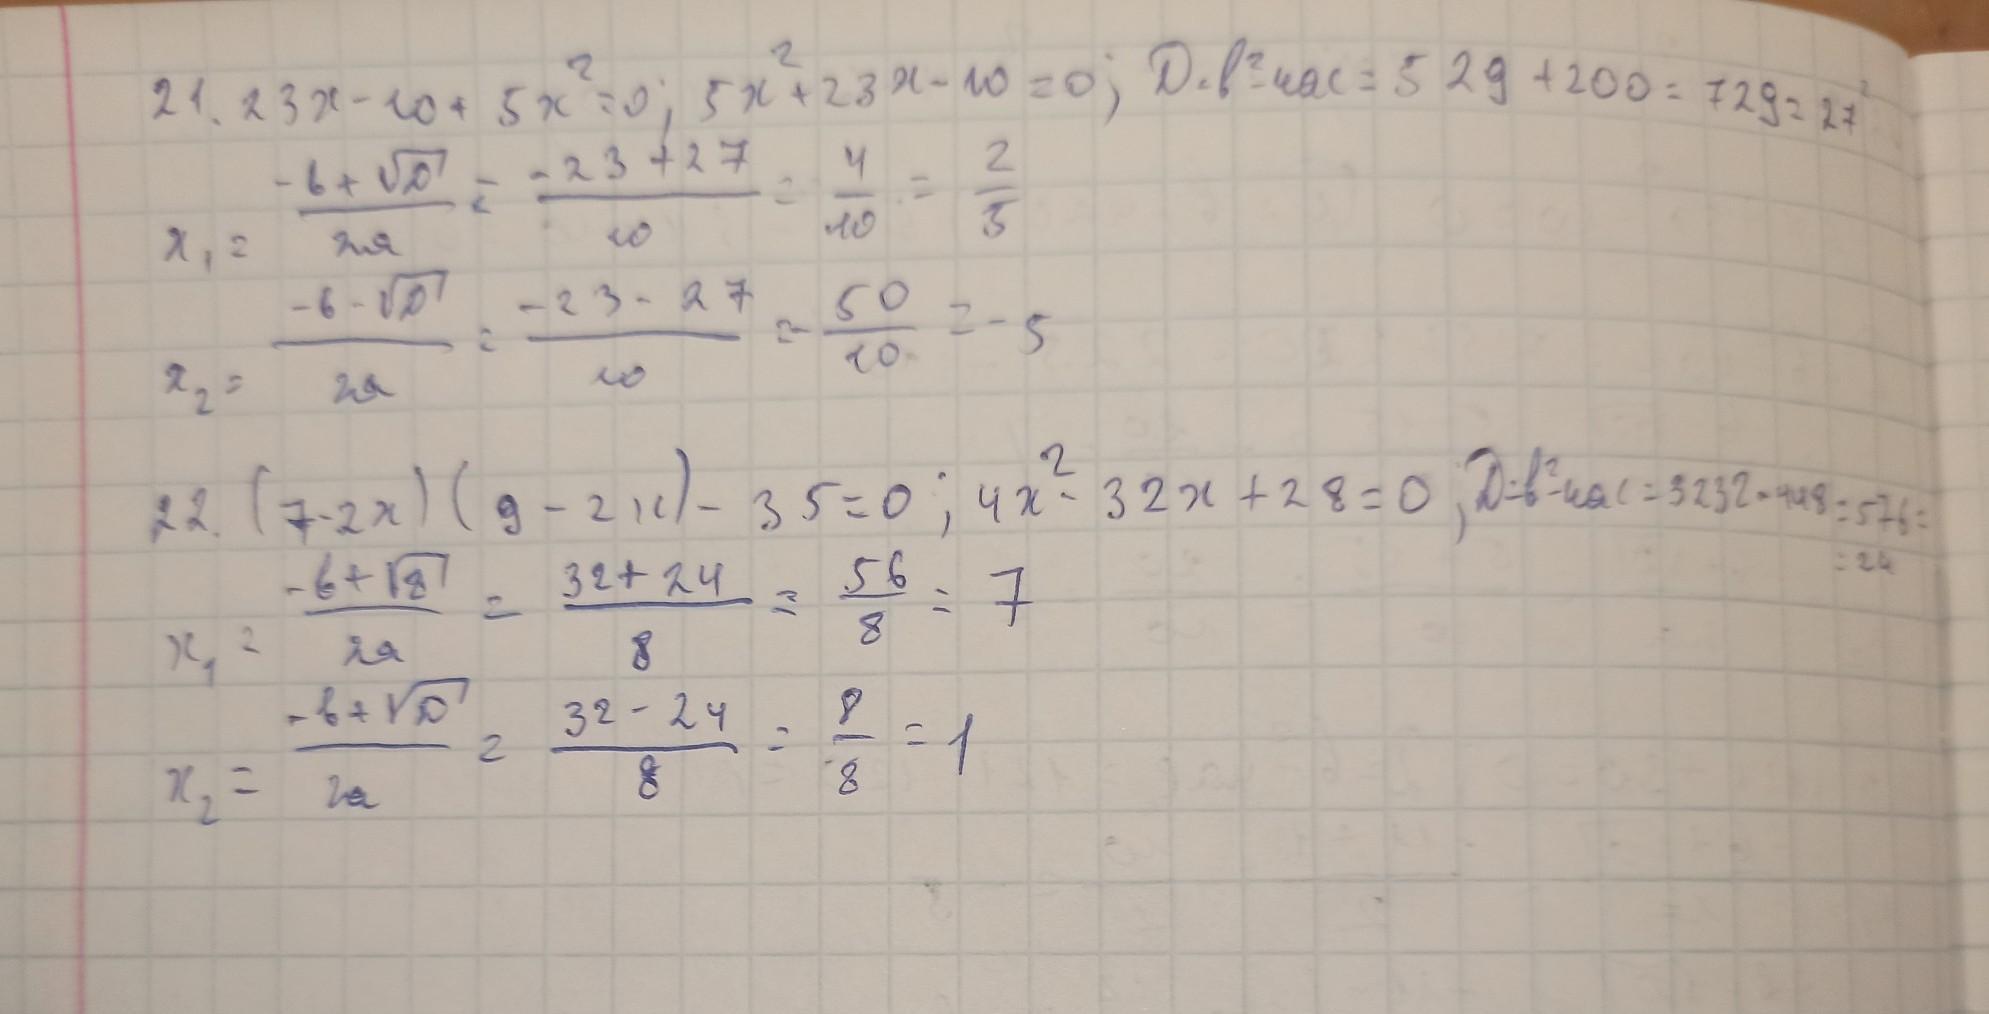 21. 23x - 10 + 5x² = 0; 5x² + 23x - 10 = 0; D = b² - 4ac = 529 + 200 = 729 = 27²
x₁ = (-b + √D)/2a = (-23 + 27)/10 = 4/10 = 2/5
x₂ = (-b - √D)/2a = (-23 - 27)/10 = - 50/10 = -5
22. (7 - 2x)(9 - 2x) - 35 = 0; 4x² - 32x + 28 = 0; D = b² - 4ac = 3232 - 448 = 576 =
= 24
x₁ = (-b + √D)/2a = (32 + 24)/8 = 56/8 = 7
x₂ = (-b + √D)/2a = (32 - 24)/8 = 8/8 = 1